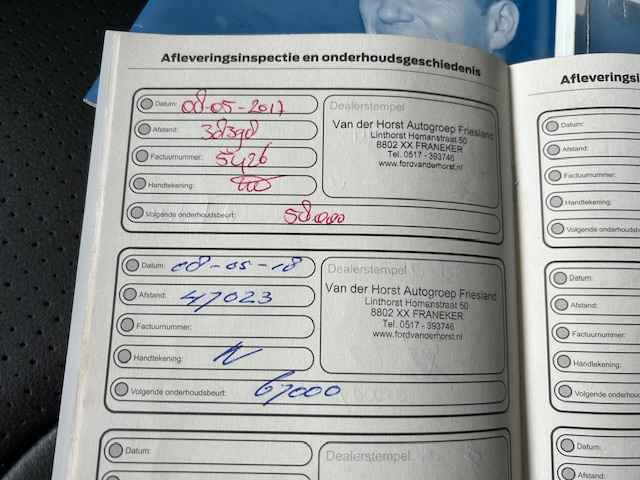 Afleveringsinspectie en onderhoudsgeschiedenis
Datum: 08-05-2017
Afstand: 38398
Factuurnummer: 5426
Handtekening:
Volgende onderhoudsbeurt: 58000
Dealerstempel
Van der Horst Autogroep Friesland
Linthorst Homanstraat 50
8802 XX FRANEKER
Tel. 0517 - 393746
www.fordvanderhorst.nl
Datum: 08-05-18
Afstand: 47023
Factuurnummer:
Handtekening:
Volgende onderhoudsbeurt: 67000
Dealerstempel
Van der Horst Autogroep Friesland
Linthorst Homanstraat 50
8802 XX FRANEKER
Tel. 0517 - 393746
www.fordvanderhorst.nl
Datum:
Dealerstempel
Afleveringsi
Datum:
Afstand:
Factuurnummer:
Handtekening:
Volgende onderhoudsbe
Datum:
Afstand:
Factuurnummer:
Handtekening:
Volgende onderhouds
Datum:
Afstand: